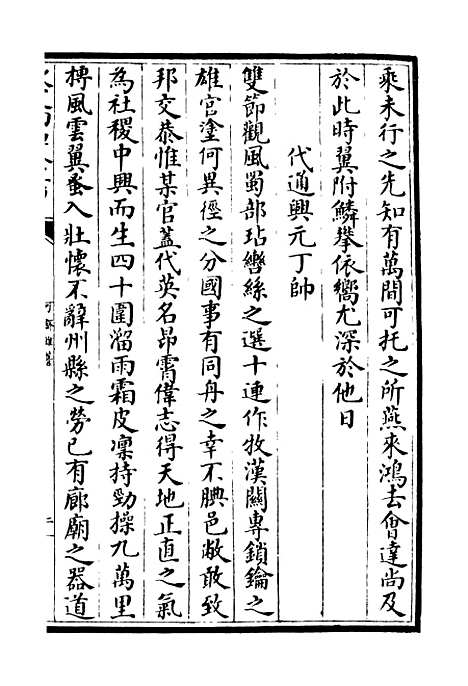 乘未行之先知有萬間可托之所燕來鴻去會達尚及
於此時翼附鱗攀依嚮尤深於他日
代通興元丁帥
雙節觀風蜀部玷轡絲之選十連作牧漢關專鎖鑰之
雄官塗何異徑之分國事有同舟之幸不腆邑敝敢致
邦交恭惟某官蓋代英名昂霄偉志得天地正直之氣
為社稷中興而生四十圍溜雨霜皮凜持勁操九萬里
摶風雲翼蚤入壯懷不辭州縣之勞已有廊廟之器道